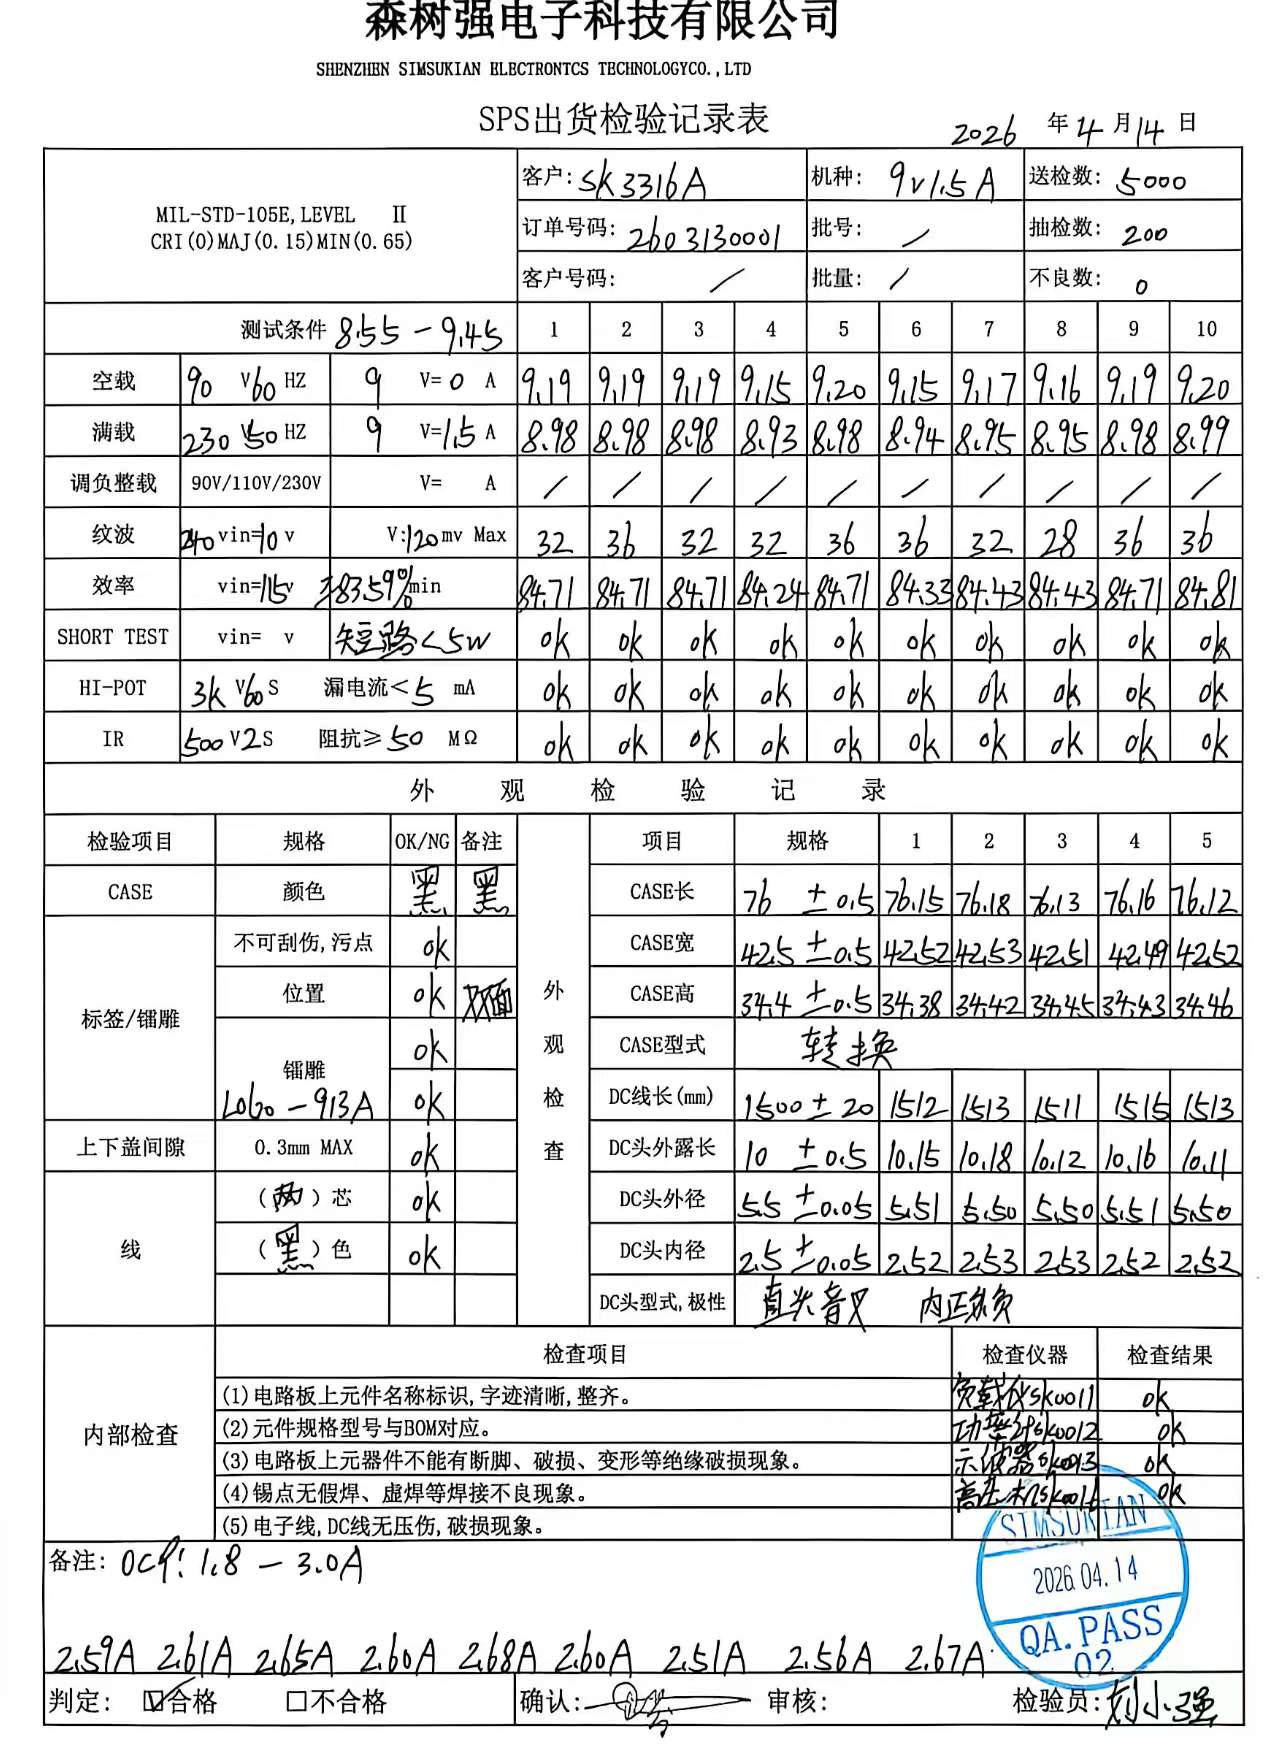 森树强电子科技有限公司
SHENZHEN SIMSUKIAN ELECTRONTCS TECHNOLOGYCO.,LTD
SPS出货检验记录表 2026 年 4 月 14 日
MIL-STD-105E,LEVEL Ⅱ
CRI(0)MAJ(0.15)MIN(0.65)
客户: SK3316A 机种: 9V1.5A 送检数: 5000
订单号码: 2603130001 批号: / 抽检数: 200
客户号码: / 批量: / 不良数: 0
测试条件 8.55-9.45 1 2 3 4 5 6 7 8 9 10
空载 90 V 60 HZ 9 V= 0 A 9.19 9.19 9.19 9.15 9.20 9.15 9.17 9.16 9.19 9.20
满载 230 V 50 HZ 9 V=1.5 A 8.98 8.98 8.98 8.93 8.98 8.94 8.95 8.95 8.98 8.99
调负整载 90V/110V/230V V= A / / / / / / / / / /
纹波 240 vin=10 v V:120mv Max 32 36 32 32 36 36 32 28 36 36
效率 vin=115v 83.59%min 84.71 84.71 84.71 84.24 84.71 84.33 84.43 84.43 84.71 84.81
SHORT TEST vin= v 短路<5W ok ok ok ok ok ok ok ok ok ok
HI-POT 3k V 60 S 漏电流<5 mA ok ok ok ok ok ok ok ok ok ok
IR 500 V 2 S 阻抗≥50 MΩ ok ok ok ok ok ok ok ok ok ok
外观检验记录
检验项目 规格 OK/NG 备注 项目 规格 1 2 3 4 5
CASE 颜色 黑 黑 CASE长 76 ±0.5 76.15 76.18 76.13 76.16 76.12
标签/镭雕 不可刮伤,污点 ok CASE宽 42.5 ±0.5 42.52 42.53 42.51 42.49 42.52
位置 ok 双面 CASE高 34.4 ±0.5 34.38 34.42 34.45 34.43 34.46
外观检查
镭雕 ok CASE型式 转换
LOGO-913A ok DC线长(mm) 1500±20 1512 1513 1511 1515 1513
上下盖间隙 0.3mm MAX ok DC头外露长 10 ±0.5 10.15 10.18 10.12 10.16 10.11
线 (两)芯 ok DC头外径 5.5 ±0.05 5.51 5.50 5.50 5.51 5.50
(黑)色 ok DC头内径 2.5 ±0.05 2.52 2.53 2.53 2.52 2.52
DC头型式,极性 直头音叉 内正外负
内部检查 检查项目 检查仪器 检查结果
(1)电路板上元件名称标识,字迹清晰,整齐。 负载仪SK0011 ok
(2)元件规格型号与BOM对应。 功率计SK0012 ok
(3)电路板上元器件不能有断脚、破损、变形等绝缘破损现象。 示波器SK0013 ok
(4)锡点无假焊、虚焊等焊接不良现象。 高压机 ok
(5)电子线,DC线无压伤,破损现象。
SIMSUKIAN
2026.04.14
QA.PASS
02
备注: OCP: 1.8-3.0A
2.59A 2.61A 2.65A 2.60A 2.68A 2.60A 2.51A 2.56A 2.67A
判定: ☑合格 □不合格 确认: 审核: 检验员: 刘小强